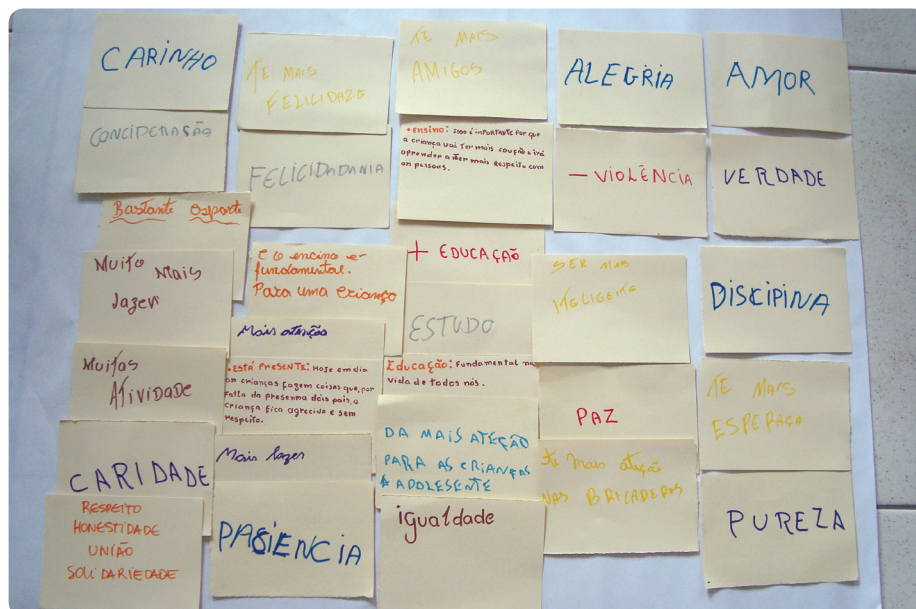 CARINHO
CONCIDERAÇÃO
Bastante esporte
Muito Mais
lazer
Muitas
Atividade
CARIDADE
RESPEITO
HONESTIDADE
UNIÃO
SOLIDARIEDADE
TE MAIS
FELICIDAZE
FELICIDADANIA
E o encino é
fundamental.
Para uma criança
Mais atenção
• ESTÁ PRESENTE: Hoje em dia
as crianças fazem coisas que, por
falta da presenma dois pais, a
criança fica agreciva e sem
respeito.
Mais lazer
PASIENCIA
TE MAIS
AMIGOS
• ENSINO: Isso é importante por que
a criança vai ter mais
aprender a ter mais respeito com
as pessoas.
+ EDUCAÇÃO
ESTUDO
Educação: Fundamental na
vida de todos nós.
DA MAIS ATEÇÃO
PARA AS CRIANÇAS
& ADOLESENTE
igualdade
ALEGRIA
- VIOLÊNCIA
SER MAS
ITELIGEITE
PAZ
te mais ateção
NAS BRICADEROS
AMOR
VERDADE
DISCIPINA
TE MAIS
ESPERAÇA
PUREZA